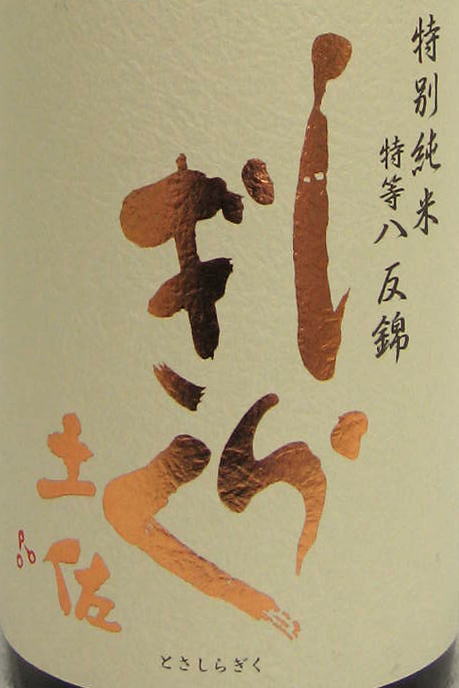 特別純米
特等八反錦
しら
ぎく
土佐
とさしらぎく